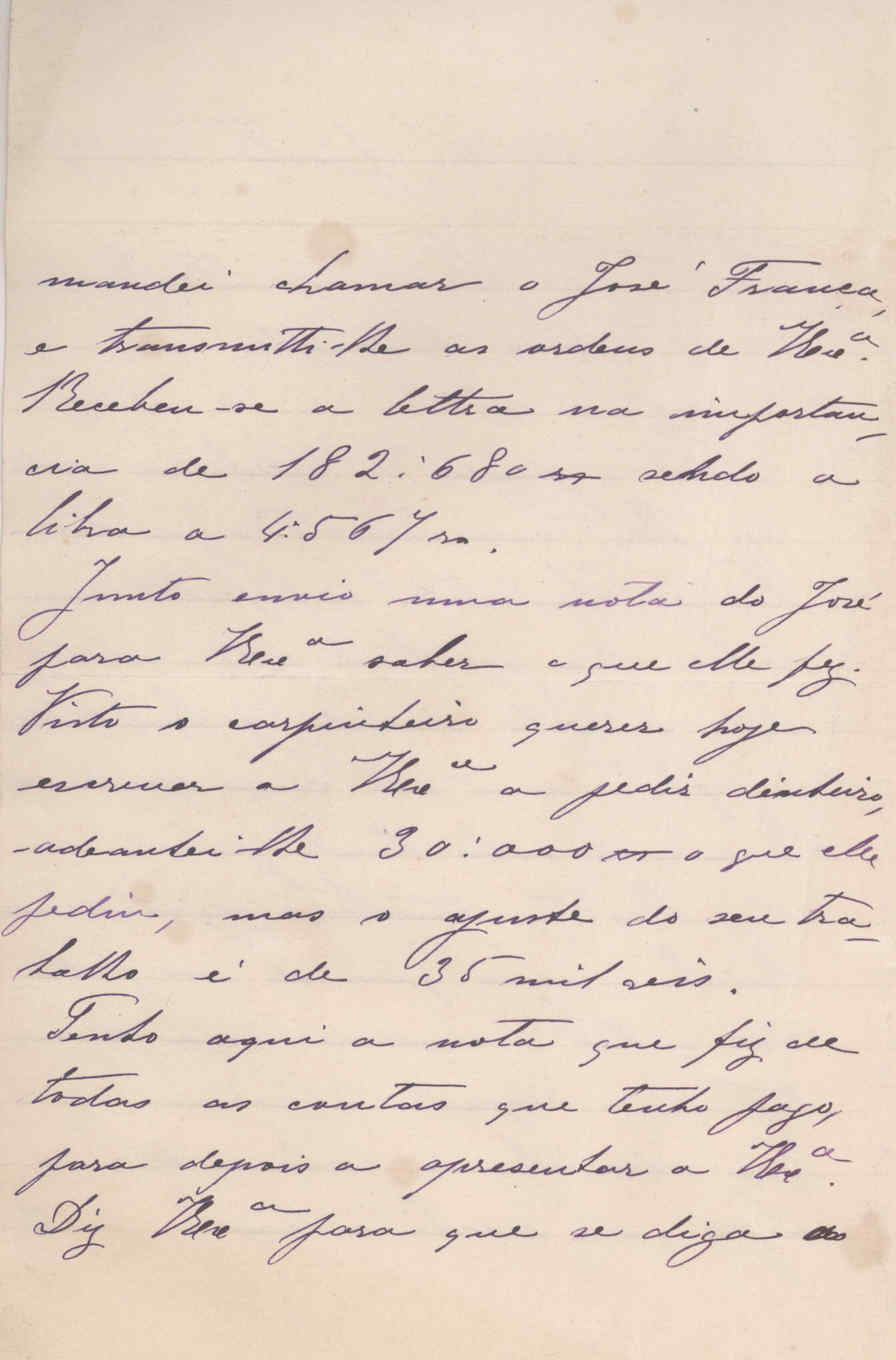 mandei chamar o José França,
e transmitti-lhe as ordens de VExª.
Recebeu-se a lettra na importan-
cia de 182:680 rs sendo a
libra a 4:567 rs.
Junto envio uma nota do José
para VExª saber o que elle fez.
Visto o carpinteiro querer hoje
escrever a VExª a pedir dinheiro,
adeantei-lhe 30:000 rs o que elle
pediu, mas o ajuste do seu tra-
balho é de 35 mil reis.
Tenho aqui a nota que fiz de
todas as contas que tenho pago,
para depois a apresentar a VExª.
Diz VExª para que se diga ao